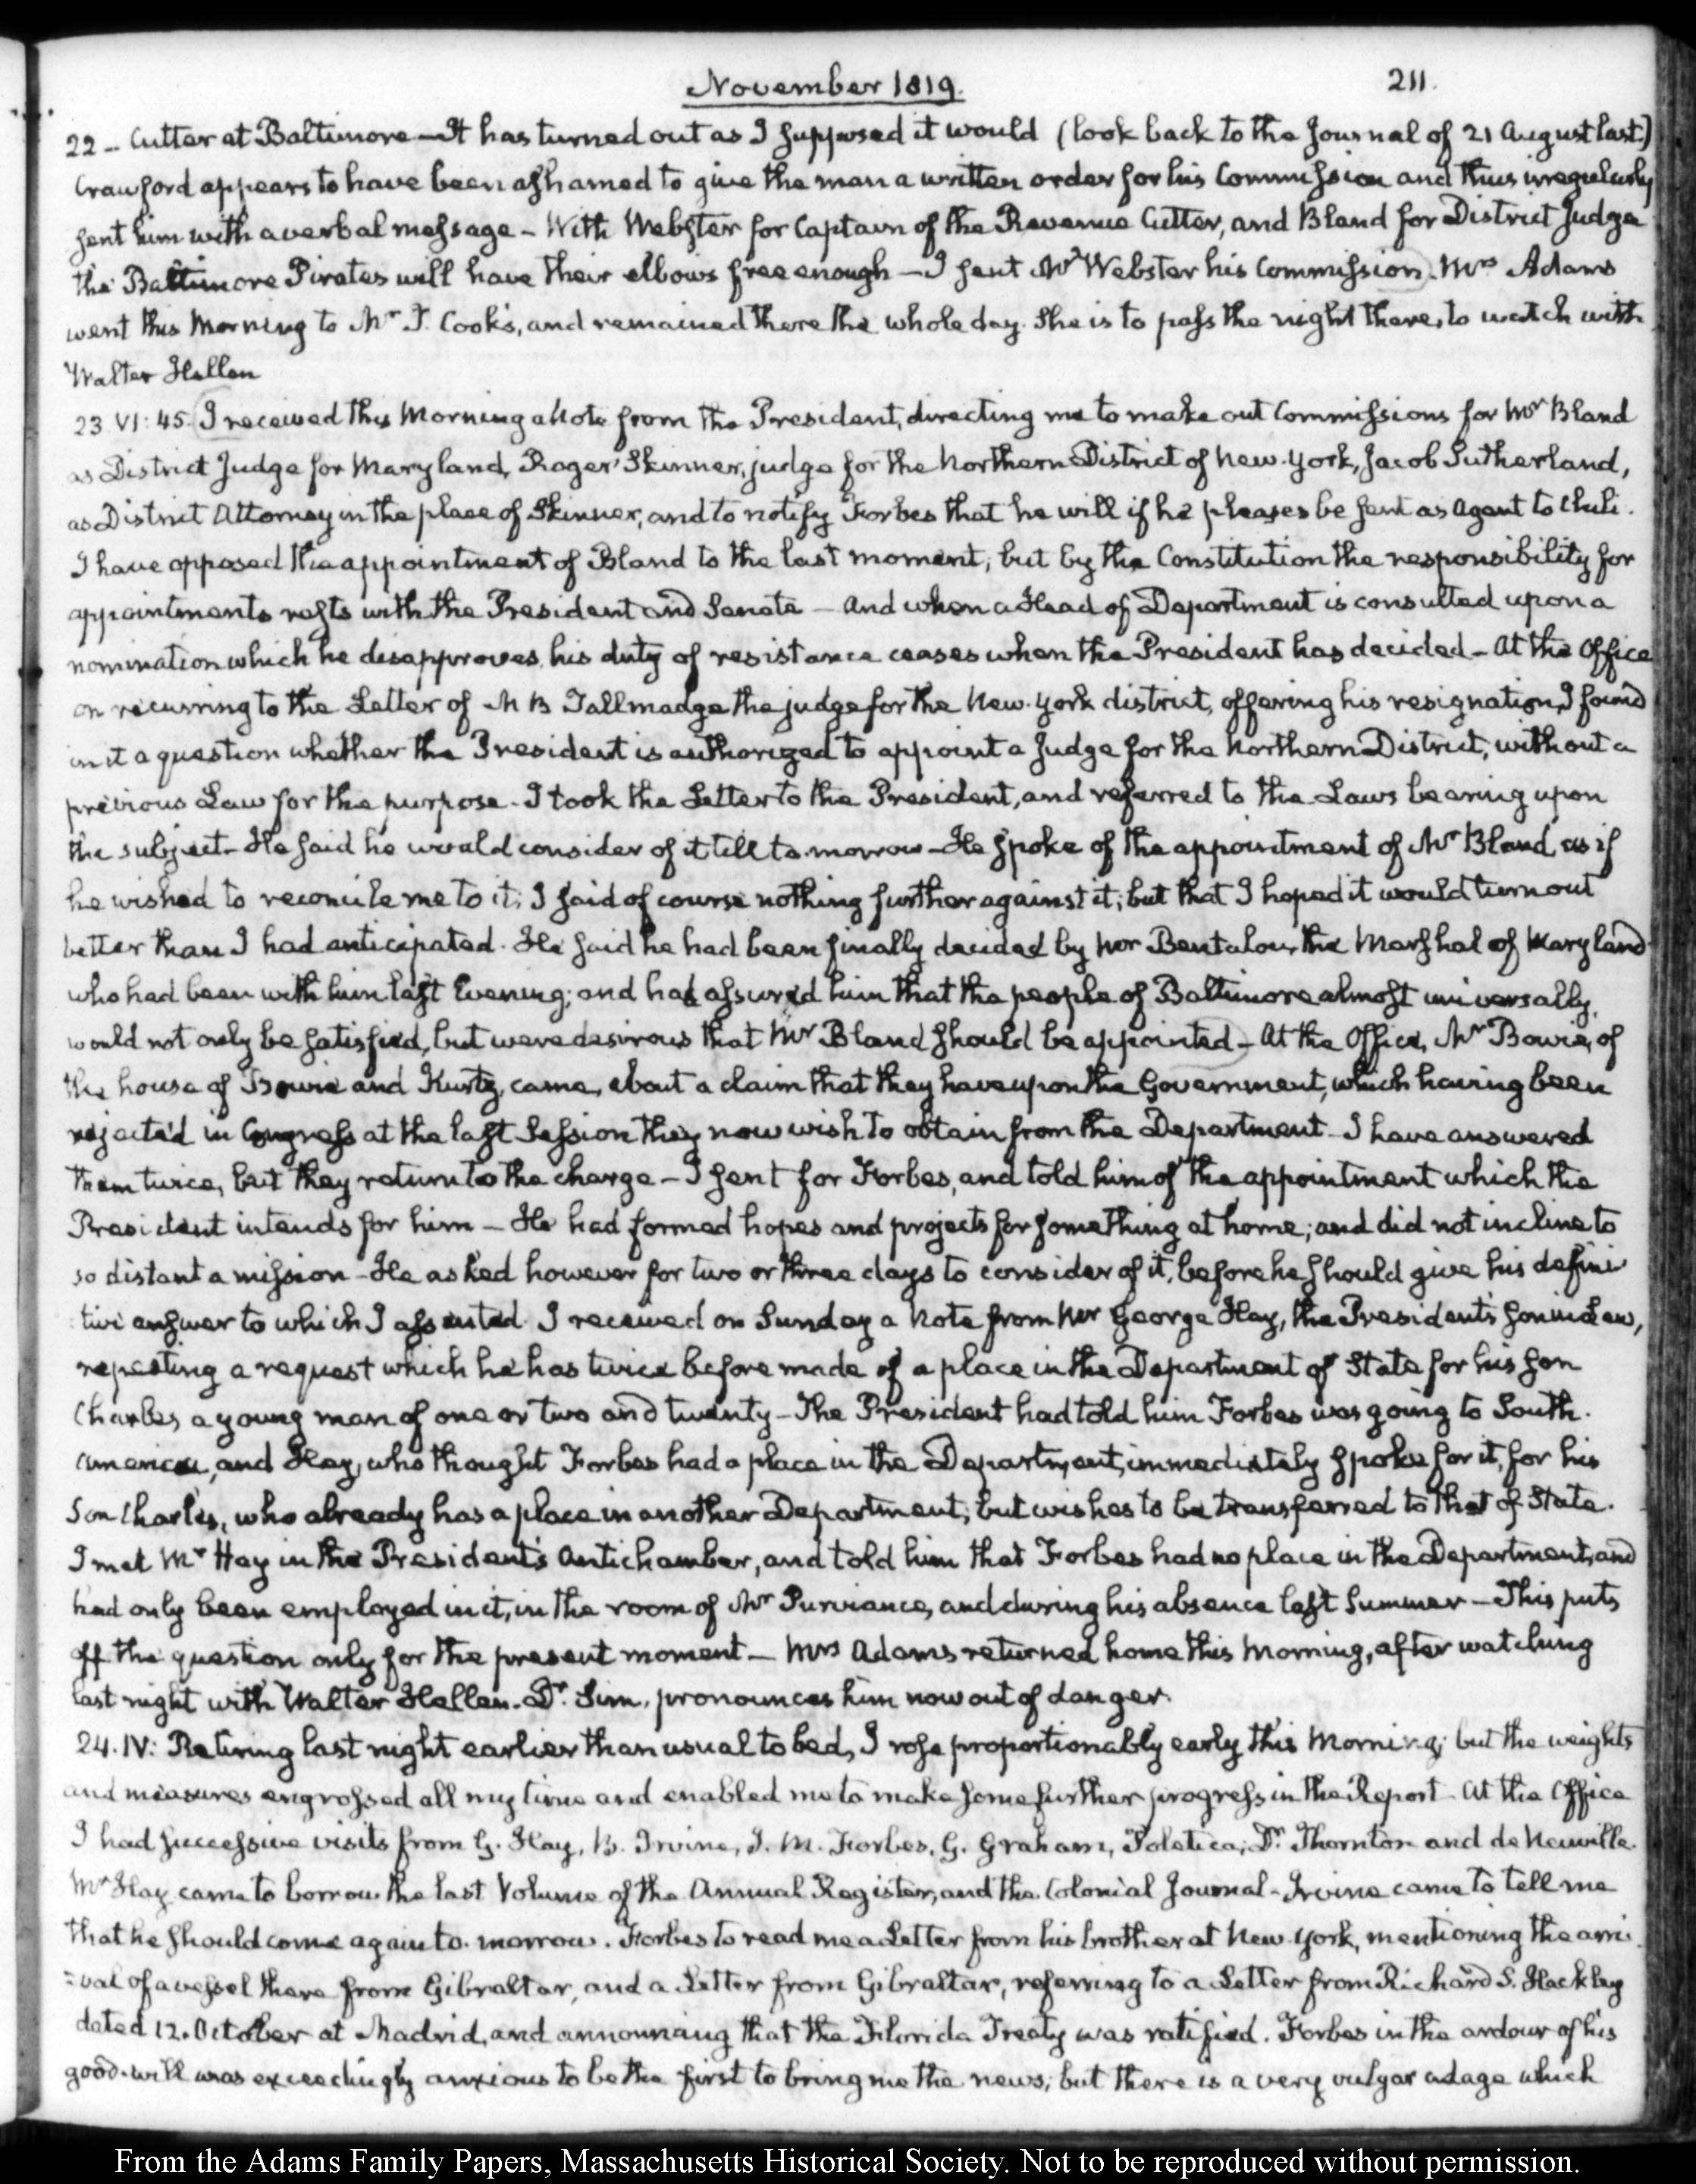 November 1819.
211.
22 - Cutter at Baltimore — It has turned out as I supposed it would (look back to the Journal of 21 August last.)
Crawford appears to have been ashamed to give the man a written order for his Commission and thus irregularly
sent him with a verbal message - With Webster for Captain of the Revenue Cutter, and Bland for District Judge
the Baltimore Pirates will have their elbows free enough — I sent Mr Webster his Commission. Mrs Adams
went this Morning to Mr J. Cook's, and remained there the whole day. She is to pass the night there, to watch with
Walter Hellen
23 VI: 45. I received this Morning a Note from the President, directing me to make out Commissions for Mr Bland
as District Judge for Maryland, Roger Skinner, judge for the Northern District of New-York, Jacob Sutherland,
as District Attorney in the place of Skinner, and to notify Forbes that he will if he pleases be sent as Agent to Chili.
I have opposed the appointment of Bland to the last moment; but by the Constitution the responsibility for
appointments rests with the President and Senate — And when a Head of Department is consulted upon a
nomination which he disapproves, his duty of resistance ceases when the President has decided - At the Office
on recurring to the Letter of M B Tallmadge the judge for the New-York district, offering his resignation, I found
in it a question whether the President is authorized to appoint a Judge for the Northern District, without a
previous Law for the purpose - I took the Letter to the President, and referred to the Laws bearing upon
the subject - He said he would consider of it till to-morrow — He spoke of the appointment of Mr Bland, as if
he wished to reconcile me to it; I said of course nothing further against it; but that I hoped it would turn out
better than I had anticipated. He said he had been finally decided by Mr Bentalou, the Marshal of Maryland
who had been with him last Evening; and had assured him that the people of Baltimore almost universally,
would not only be satisfied, but were desirous that Mr Bland should be appointed - At the Office, Mr Bowie, of
the house of Bowie and Kurtz, came, about a claim that they have upon the Government, which having been
rejected in Congress at the last Session they now wish to obtain from the Department - I have answered
them twice, but they return to the charge - I sent for Forbes, and told him of the appointment which the
President intends for him — He had formed hopes and projects for something at home; and did not incline to
so distant a mission - He asked however for two or three days to consider of it, before he should give his defini
tive answer to which I assented. I received on Sunday a Note from Mr George Hay, the President's son in Law,
repeating a request which he has twice before made of a place in the Department of State for his son
Charles, a young man of one or two and twenty - The President had told him Forbes was going to South-
America, and Hay, who thought Forbes had a place in the Department, immediately spoke for it, for his
Son Charles, who already has a place in another Department, but wishes to be transferred to that of State.
I met Mr Hay in the President's Antichamber, and told him that Forbes had no place in the Department, and
had only been employed in it, in the room of Mr Purviance, and during his absence last Summer — This puts
off the question only for the present moment — Mrs Adams returned home this Morning, after watching
last night with Walter Hellen. Dr. Sim, pronounces him now out of danger.
24. IV: Retiring last night earlier than usual to bed, I rose proportionably early this Morning; but the weights
and measures engrossed all my time and enabled me to make some further progress in the Report - At the Office
I had successive visits from G. Hay, B. Irvine, J. M. Forbes, G. Graham, Poletica, Dr. Thornton and de Neuville.
Mr Hay came to borrow the last Volume of the Annual Register, and the Colonial Journal - Irvine came to tell me
that he should come again to-morrow. Forbes to read me a Letter from his brother at New-York, mentioning the arri
=val of a vessel there from Gibraltar, and a Letter from Gibraltar, referring to a Letter from Richard S. Hackley
dated 12. October at Madrid, and announcing that the Florida Treaty was ratified. Forbes in the ardour of his
good-will was exceedingly anxious to be the first to bring me the news; but there is a very vulgar adage which
From the Adams Family Papers, Massachusetts Historical Society. Not to be reproduced without permission.